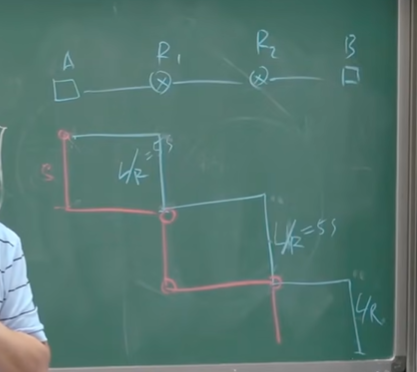 A R₁ R₂ B
5
L/R = 5s
L/R = 5s
L/R